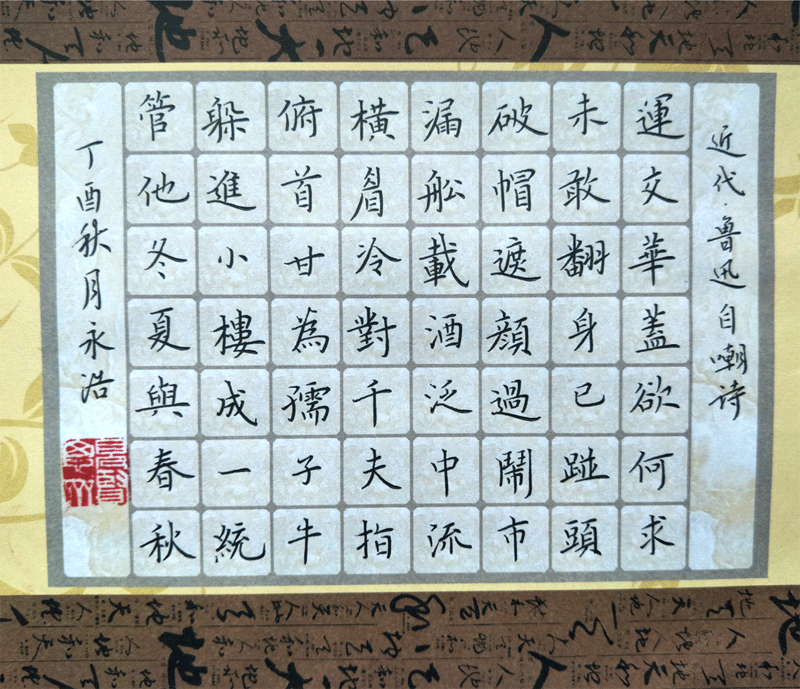 近代·鲁迅自嘲诗
運交華蓋欲何求
未敢翻身已踫頭
破帽遮顔過鬧市
漏舩載酒泛中流
橫眉冷對千夫指
俯首甘為孺子牛
躲進小樓成一統
管他冬夏與春秋
丁酉秋月永浩